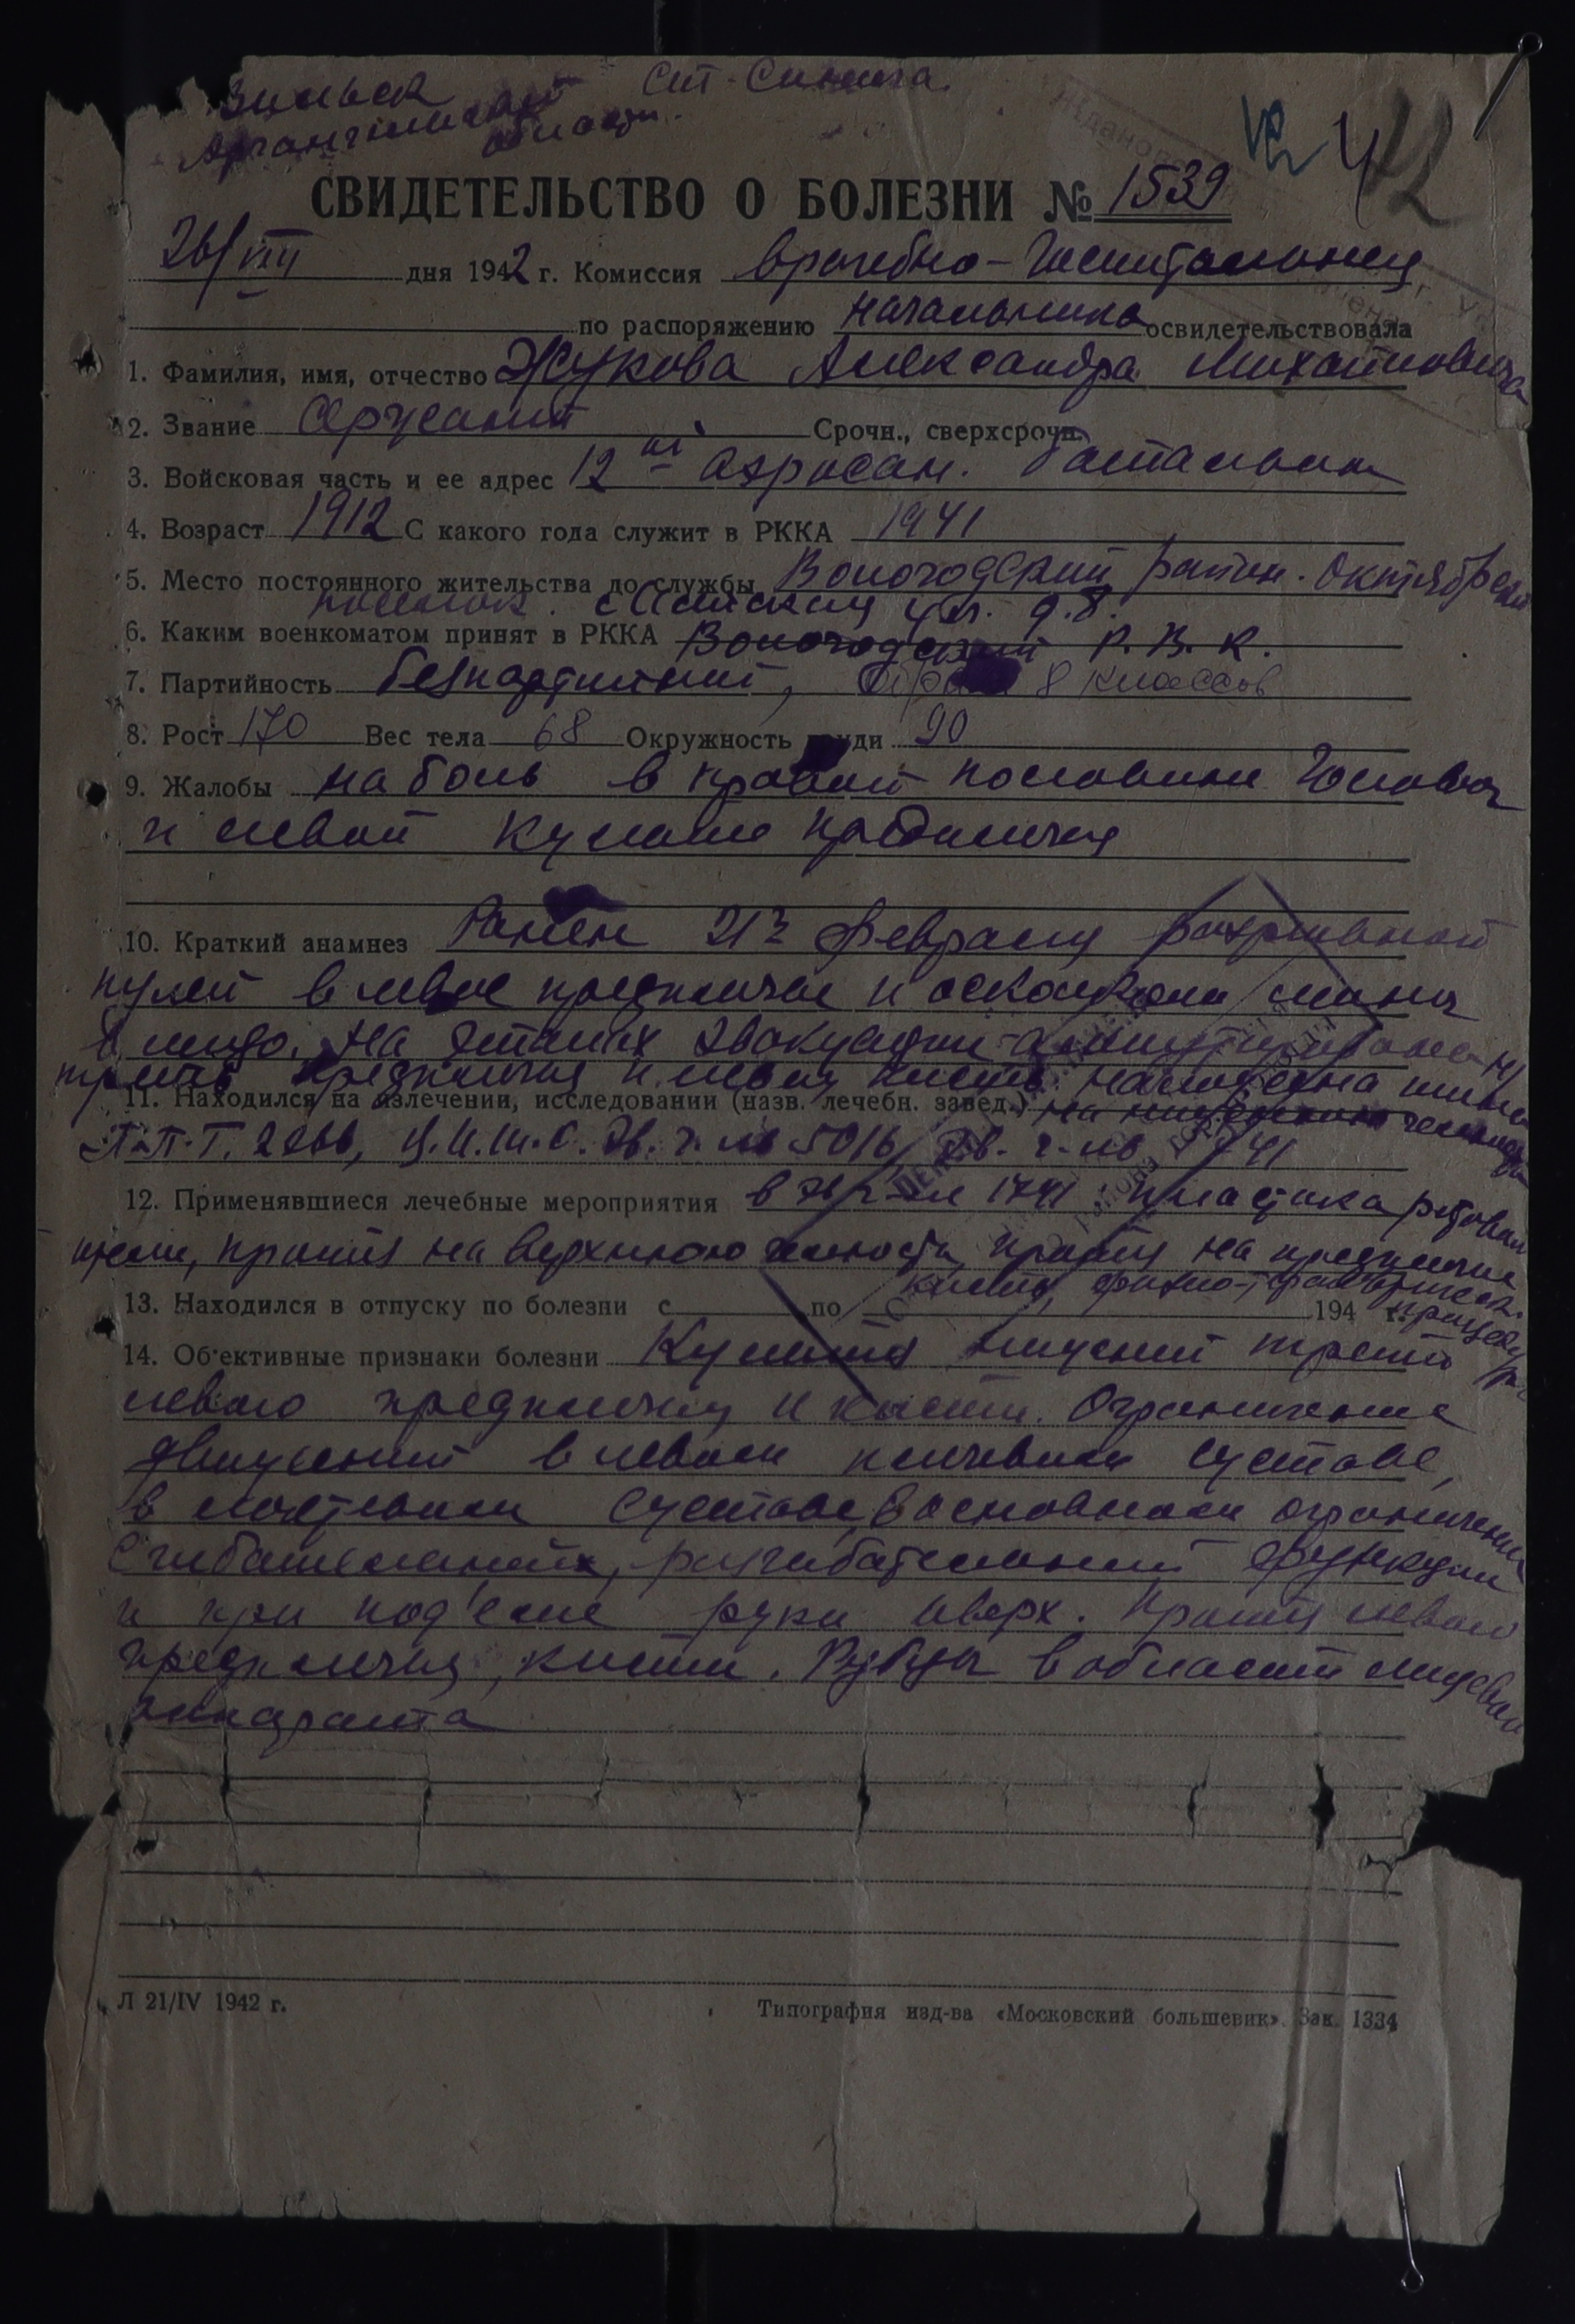 Ст. Синега
Архангельской
области.
СВИДЕТЕЛЬСТВО О БОЛЕЗНИ № 1539
26/VIII дня 1942 г. Комиссия врачебно-госпитальная
по распоряжению начальника освидетельствовала
1. Фамилия, имя, отчество Жукова Александра Михайловича
2. Звание Сержант Срочн., сверхсрочн.
3. Войсковая часть и ее адрес 12й аэросан. батальон
4. Возраст 1912 С какого года служит в РККА 1941
5. Место постоянного жительства до службы Вологодский район. Октябрьский
поселок. ул. д. 8.
6. Каким военкоматом принят в РККА Вологодский Р.В.К.
7. Партийность безпартийный, 8 классов
8. Рост 170 Вес тела 68 Окружность груди 90
9. Жалобы на боль в правой половине головы
и левой культе предплечья
10. Краткий анамнез Ранен 21го февраля разрывной
пулей в левое предплечье и осколком мины
в лицо. На этапах эвакуации ампутирована н/
треть предплечья и левая кисть. наложена шина
11. Находился на излечении, исследовании (назв. лечебн. завед.)
П.П.Г. 2266, Эв. г. № 5016, Эв. г. № 1741
12. Применявшиеся лечебные мероприятия в эв. г-ле 1741 пластика ротовой
щели, протез на верхнюю челюсть, протез на предплечье
кисть,
13. Находился в отпуску по болезни с по 194 г.
14. Об'ективные признаки болезни Культя нижней трети
левого предплечья и кисти. Ограничение
движений в левом плечевом суставе,
в локтевом суставе, в основном ограничение
сгибательных, разгибательных функции
и при под'еме руки вверх. Протез левого
предплечья, кисти. Рубцы в области лицевого
аппарата
Л 21/IV 1942 г. Типография изд-ва «Московский большевик». Зак. 1334